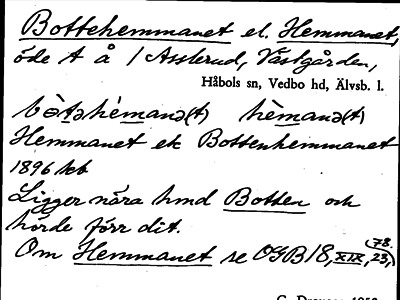 Bottehemmanet el. Hemmanet,
öde t å 1 Asslerud, Västgården,
Håbols sn, Vedbo hd, Älvsb. l.
bòtəhèmanə(t) hèmanə(t)
Hemmanet el. Bottenhemmanet
1896 kb
Ligger nära hmd Botten och
hörde förr dit.
Om Hemmanet se OGB 18, XIX, 23,) 78.